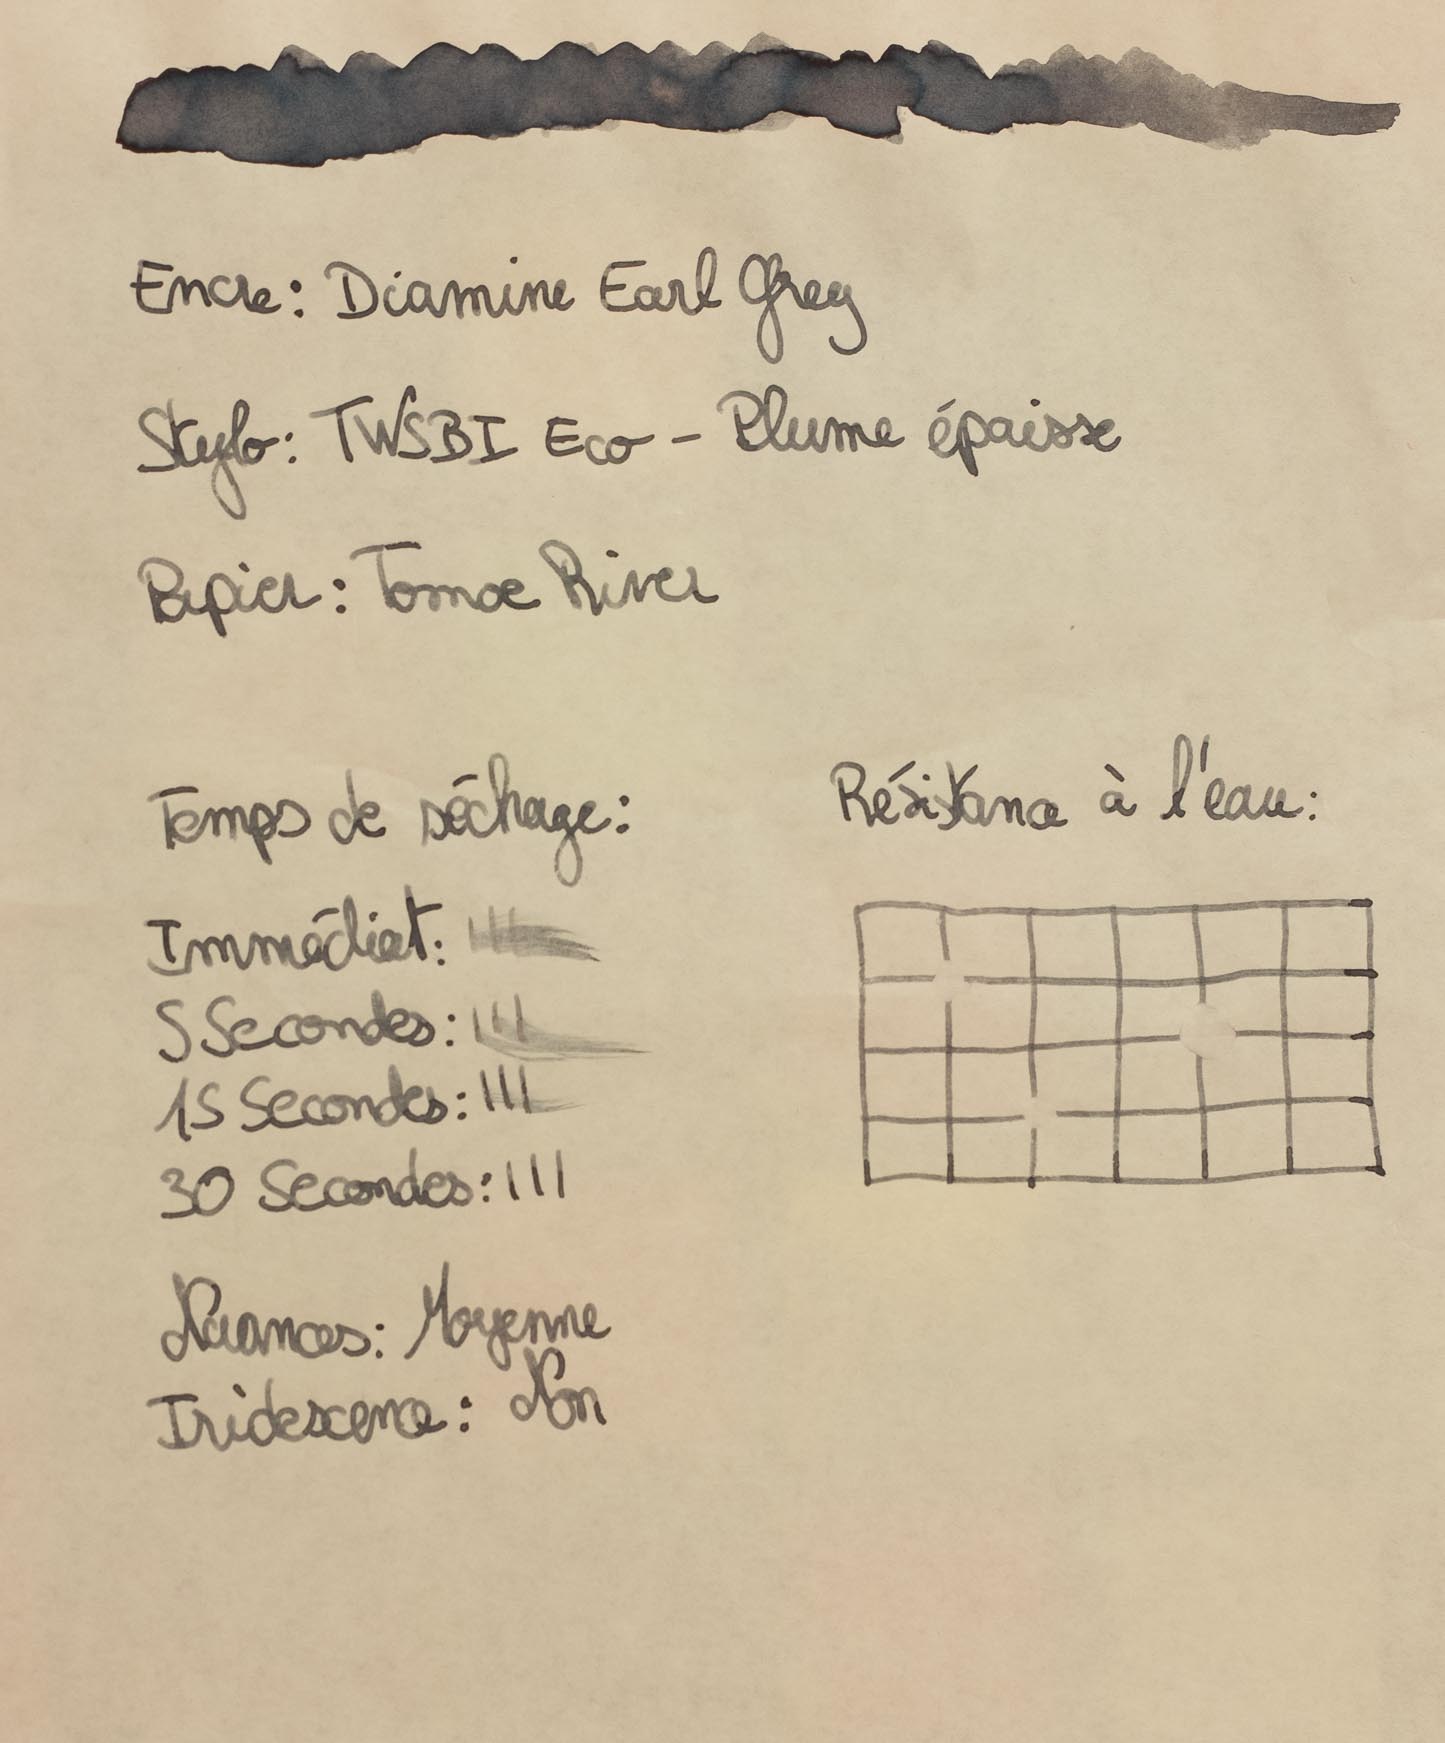 Encre: Diamine Earl Grey
Stylo: TWSBI Eco - Plume épaisse
Papier: Tomoe River
Temps de séchage:
Immédiat: III
5 Secondes: III
15 Secondes: III
30 Secondes: III
Nuances: Moyenne
Iridescence: Non
Résistance à l'eau: